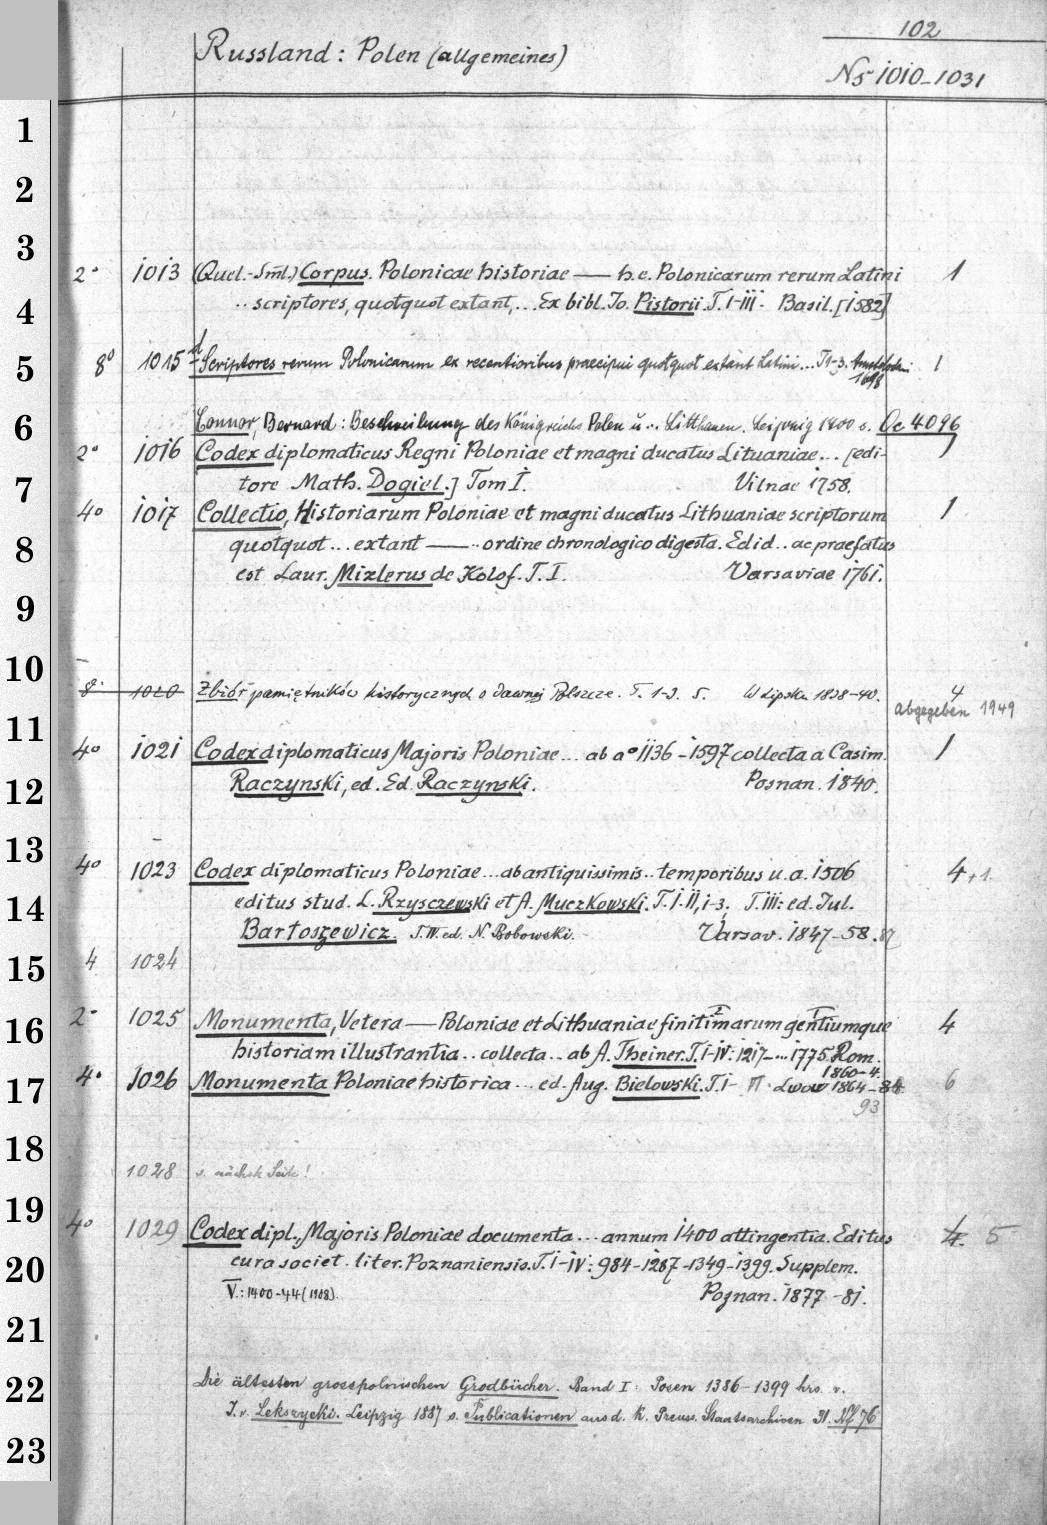 102
Russland: Polen (allgemeines)
N5 1010-1031
1
2
3
2° 1013 (Quel.-Sml.) Corpus. Polonicae historiae — h.e. Polonicarum rerum Latini 1
4
.. scriptores, quotquot extant,... Ex bibl. Io. Pistorii. T. I-III. Basil. [1582]
5
8° 1015d Scriptores rerum Polonicarum ex recentioribus praecipui quotquot extant Latini... T 1-3. 1698 1
6
Connor, Bernard: Beschreibung des Königreichs Polen u... Litthauen. Leipzig 1700 s. Oc 4096
2° 1016 Codex diplomaticus Regni Poloniae et magni ducatus Lituaniae... [edi- 1
7
tore Math. Dogiel.] Tom I. Vilnae 1758.
4° 1017 Collectio, Historiarum Poloniae et magni ducatus Lithuaniae scriptorum 1
8
quotquot... extant — .. ordine chronologico digesta. Edid.. ac praefatus
est Laur. Mizlerus de Kolof. T. I. Varsaviae 1761.
9
10
8° 1020 Zbiór pamiętników historycznych o dawnej Polszcze. T. 1-3. 5. W Lipsku 1838-40. 4
abgegeben 1949
11
4° 1021 Codex diplomaticus Majoris Poloniae... ab a° 1136-1597 collecta a Casim. 1
12
Raczynski, ed. Ed. Raczynski. Posnan. 1840.
13
4° 1023 Codex diplomaticus Poloniae... ab antiquissimis.. temporibus u. a. 1506 4+1.
14
editus stud. L. Rzysczewski et A. Muczkowski. T. I. II, 1-3, T. III: ed. Jul.
Bartoszewicz. T. IV. ed. N. Bobowski. Varsav. 1847-58. 87
15
4 1024
16
2° 1025 Monumenta, Vetera — Poloniae et Lithuaniae finitimarum gentiumque 4
historiam illustrantia.. collecta.. ab A. Theiner. T. I-IV: 1217-...1775. Rom.
1860-4.
17
4° 1026 Monumenta Poloniae historica... ed. Aug. Bielowski. T. I- VI. Lwow 1864-88. 6
93
18
1028 s. nächste Seite!
19
4° 1029 Codex dipl., Majoris Poloniae documenta... annum 1400 attingentia. Editus 4. 5
20
cura societ. liter. Poznaniensis. T. I-IV: 984-1287-1349-1399. Supplem.
V.: 1400-44 (1908). Poznan. 1877-81.
21
22
Die ältesten grosspolnischen Grodbücher. Band I: Posen 1386-1399 hrs. v.
J. v. Lekszycki. Leipzig 1887 s. Publicationen aus d. K. Preuss. Staatsarchiven 31. Nf 76
23